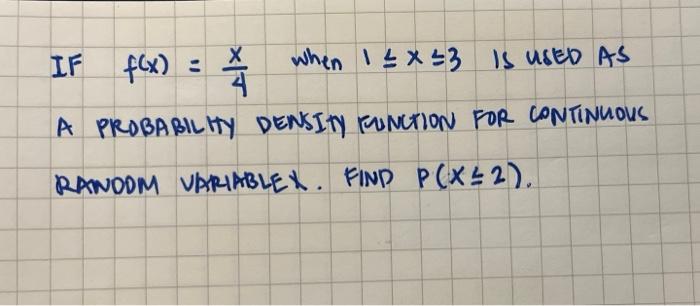 IF f(x) = x/4 when 1 ≤ x ≤ 3 IS USED AS
A PROBABILITY DENSITY FUNCTION FOR CONTINUOUS
RANDOM VARIABLE X. FIND P(X ≤ 2).